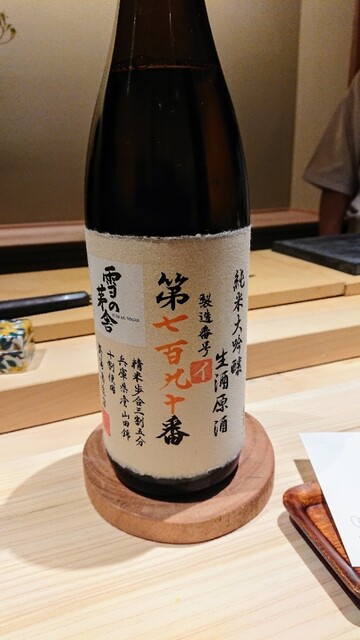 純米大吟醸
生酒原酒
製造番号
イ
第七百九十番
雪の茅舎
精米歩合三割五分
兵庫県産山田錦
十割使用